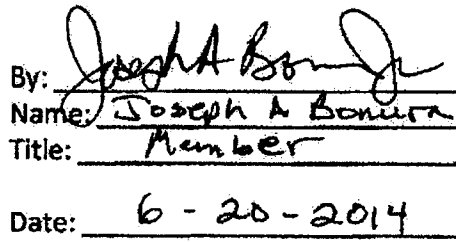 By: Joseph A Bonura Jr
Name: Joseph A Bonura
Title: Member
Date: 6-20-2014